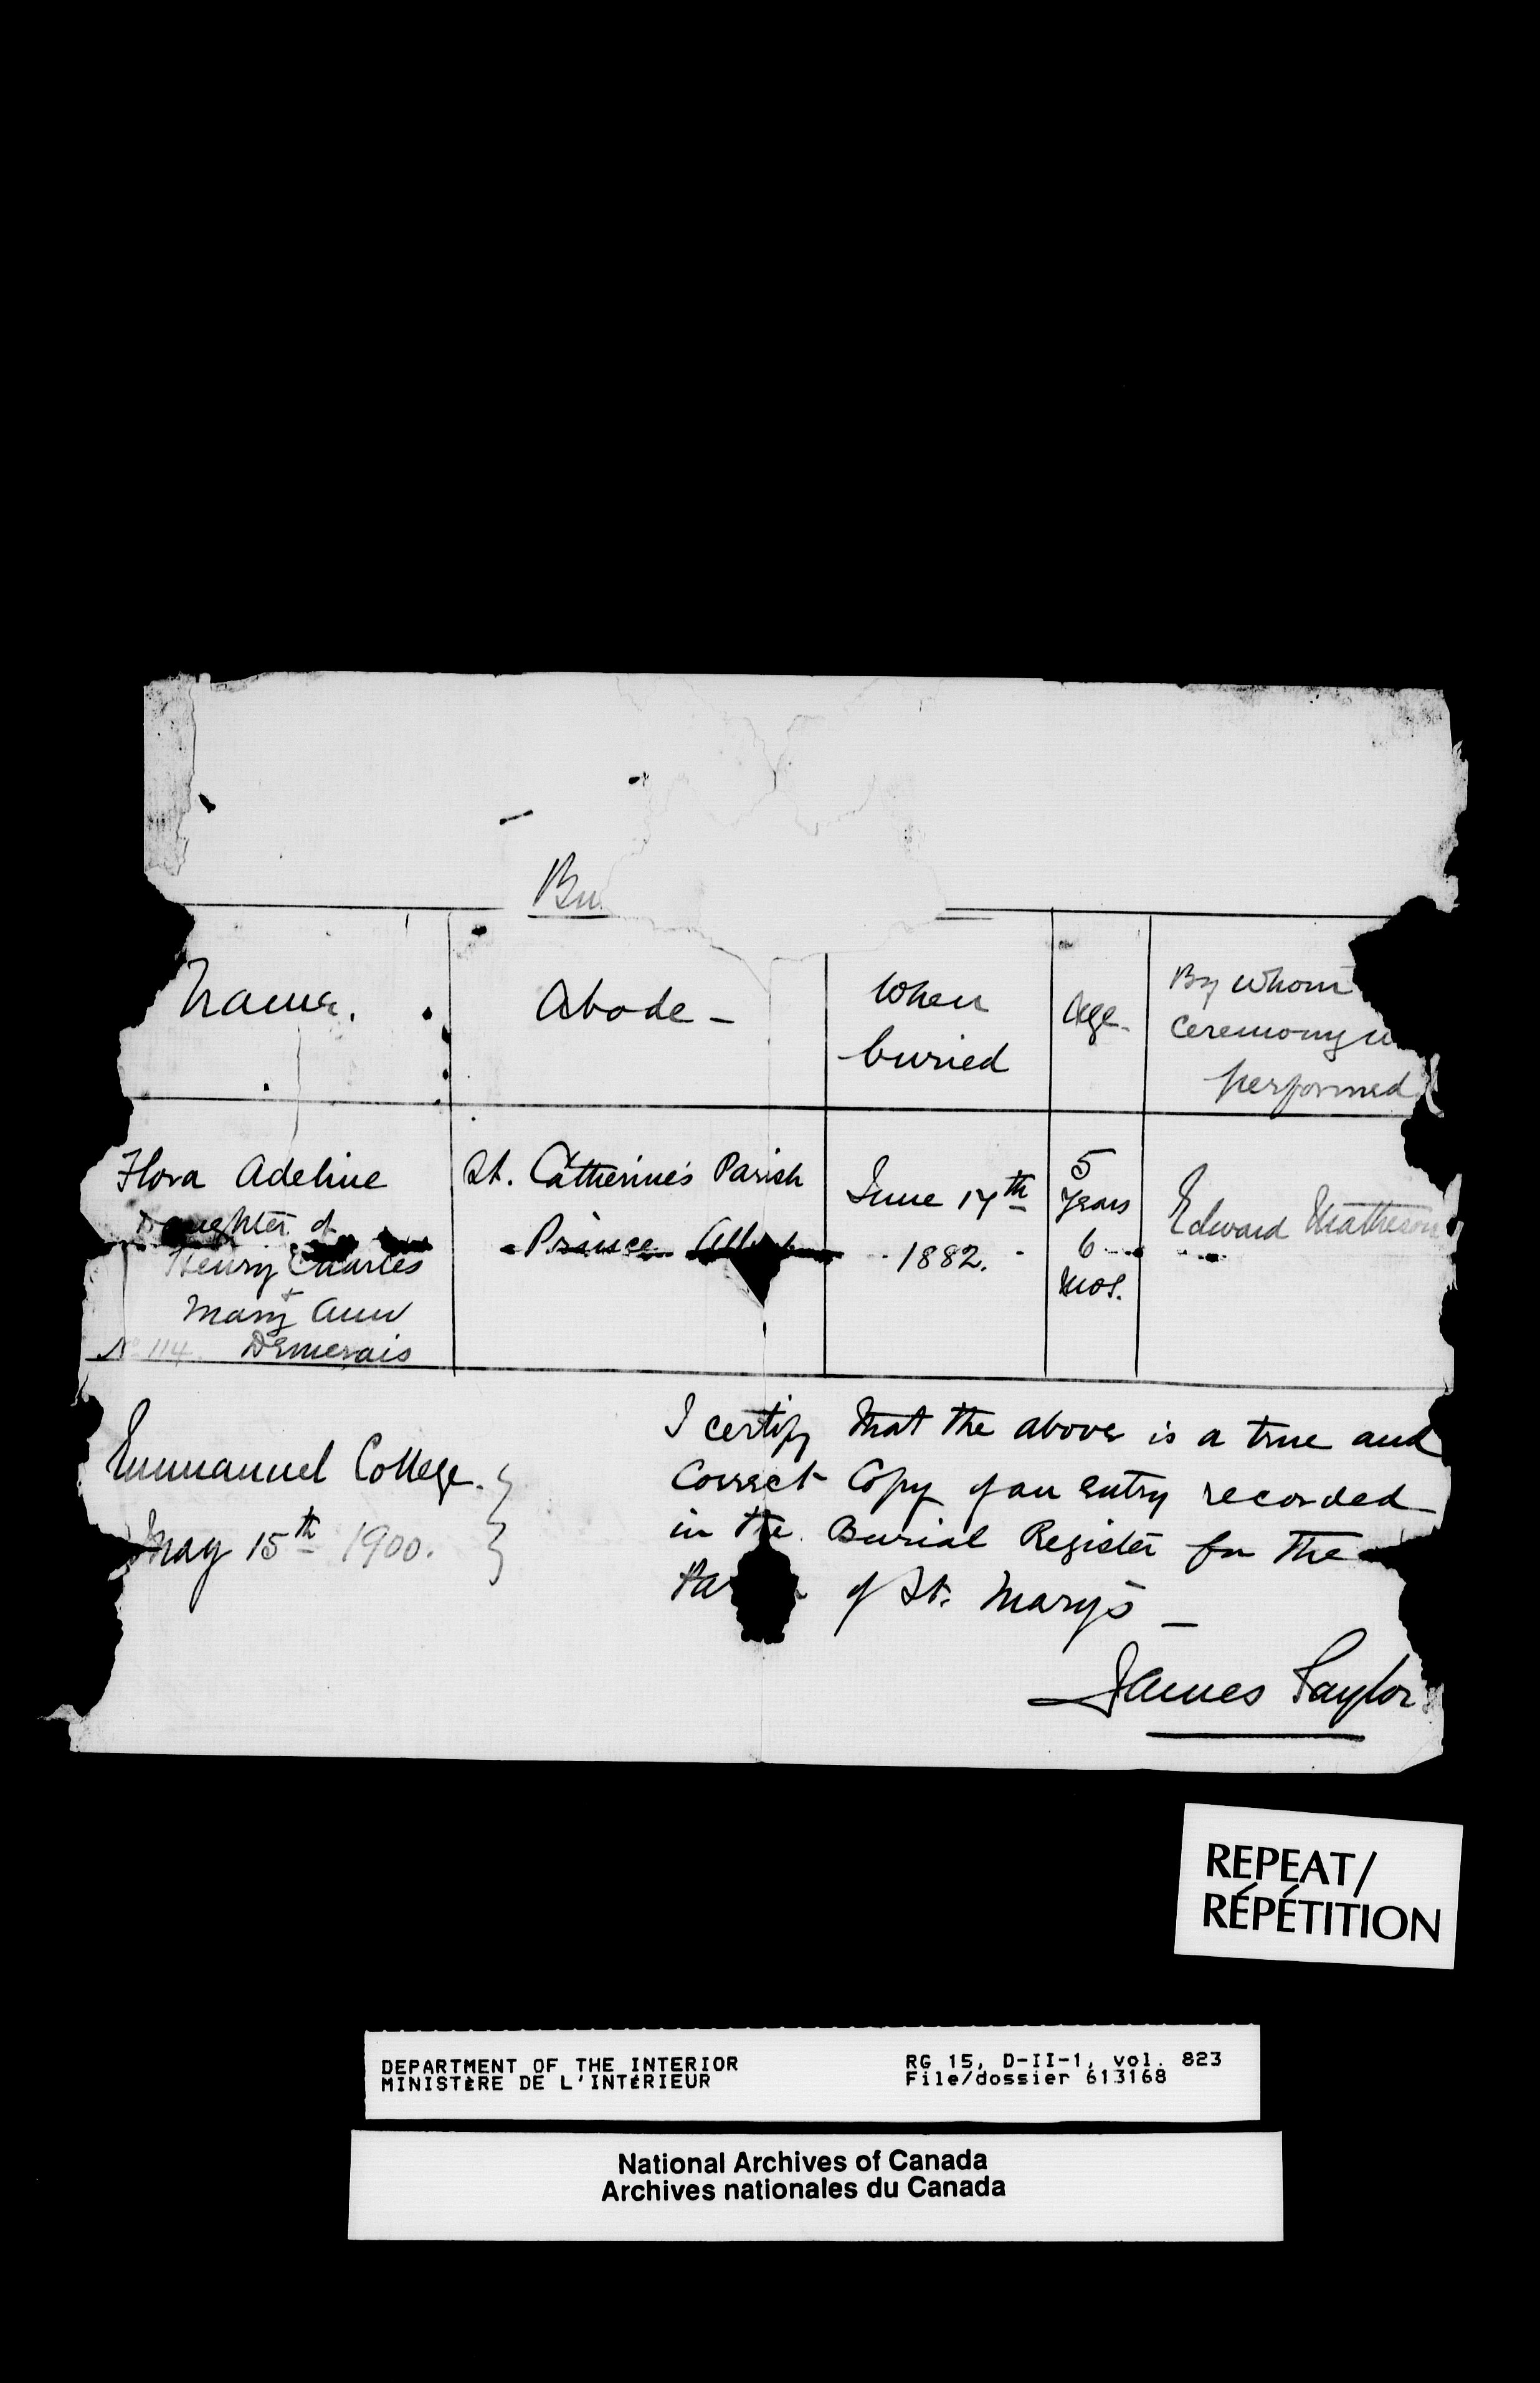 Bu
Name.
Abode -
When
buried
Age.
By whom
ceremony w
performed
Flora Adeline
Daughter of
Henry Charles
+
Mary Ann
No 114. Demerais
St. Catherine's Parish
Prince Albert
June 17th
1882.
5
years
6
mos.
Edward Matheson
Emmanuel College.
May 15th 1900.
I certify that the above is a true and
Correct Copy of an entry recorded
in the Burial Register for the
Pa of St. Mary's -
James Taylor
REPEAT/
RÉPÉTITION
DEPARTMENT OF THE INTERIOR
MINISTÈRE DE L'INTÉRIEUR
RG 15, D-II-1, vol. 823
File/dossier 613168
National Archives of Canada
Archives nationales du Canada